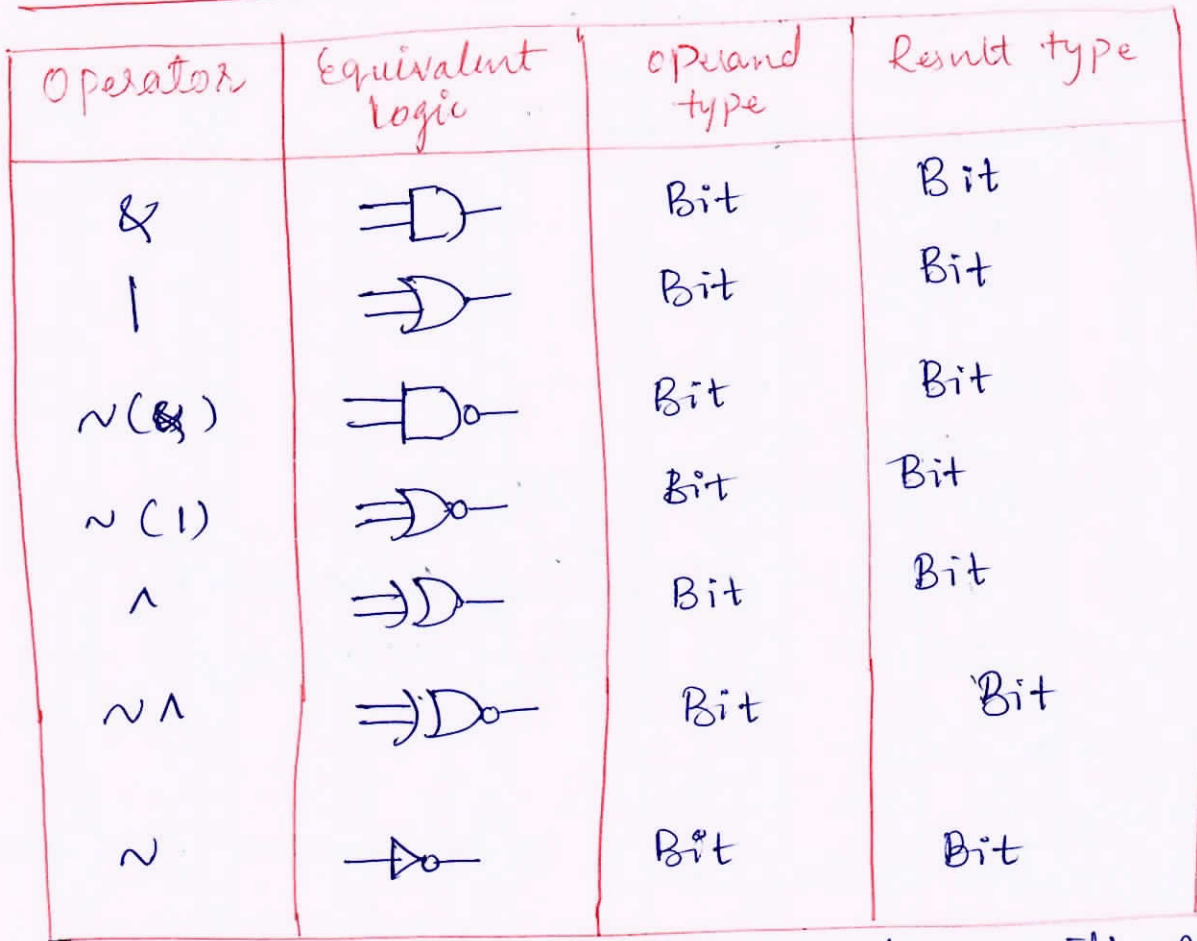 Operator Equivalent Logic Operand type Result type
& Bit Bit
| Bit Bit
~(&) Bit Bit
~(|) Bit Bit
^ Bit Bit
~^ Bit Bit
~ Bit Bit